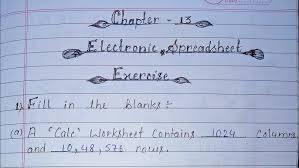 Chapter - 13
Electronic Spreadsheet
Exercise
1) Fill in the blanks :-
(a) A "Calc" Worksheet contains 1024 columns
and 10,48,576 rows.